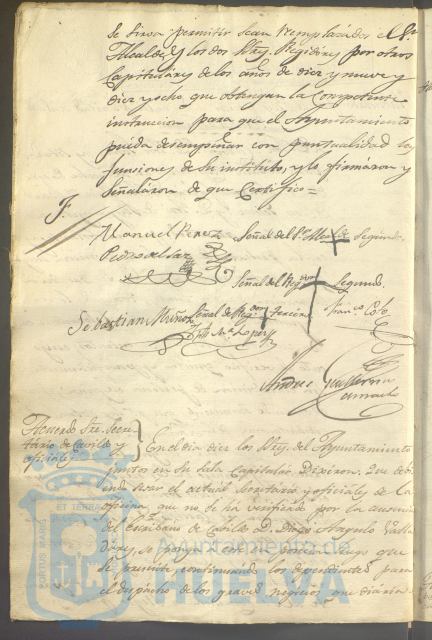 se sirva permitir sean remplazados el Sr
Alcalde y los dos Sres. Regidores por otros
Capitulares de los años de diez y nueve y
diez y ocho que obtengan la competente
instruccion para que el Ayuntamiento
pueda desempeñar con puntualidad las
funciones de su instituto, y lo firmaron y
señalaron de que Certifico =
Manuel Perez Señal del Sr. Alcalde Segundo
Pedro
Señal del Regidor Segundo
Sebastian Muñoz Señal del Regidor tercero Franco Coto
Jph Ma Lopez
Andres Guillermo
Acuerdo sre. Secre
tario de Cavildo y
oficiales
En el dia diez los Sres. del Ayuntamiento
juntos en su Sala Capitular Dixeron: Que debi
endo cesar el actual Secretario y oficiales de la
oficina, que no se ha verificado por la ausencia
del Escribano de Cavildo D. Diego Angulo Valla
dares, se ponga en su posecion luego que
se presente, continuando los dependientes para
el despacho de los graves negocios que diaria
PORTUS MARIS
ET TERRAE
Ayuntamiento de
HUELVA